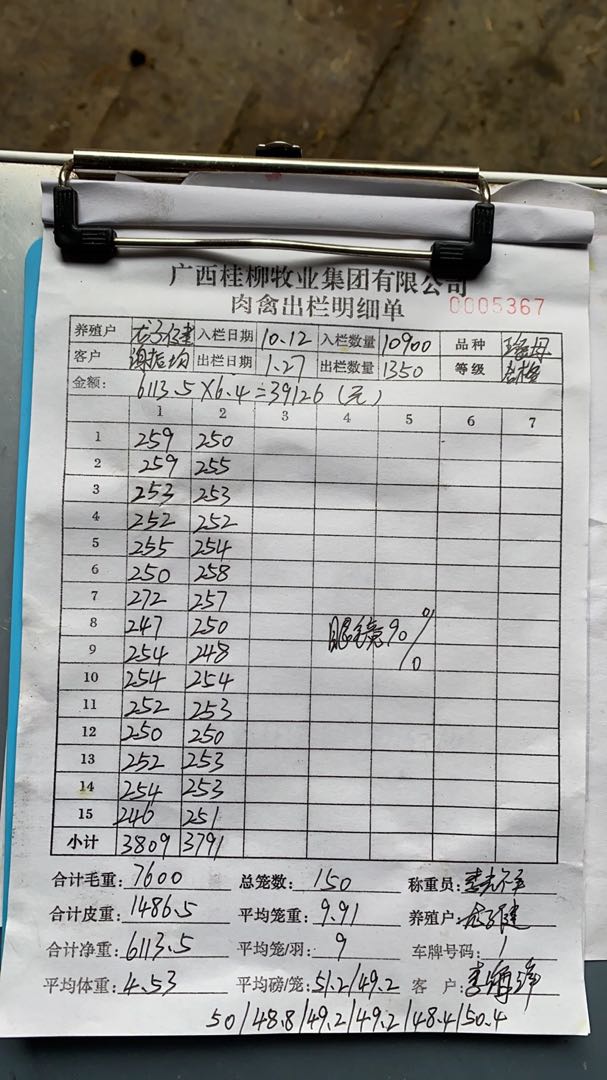 广西桂柳牧业集团有限公司
肉禽出栏明细单 0005367
养殖户 入栏日期 10.12 入栏数量 10900 品种
客户 出栏日期 1.27 出栏数量 1350 等级
金额: 6113.5×6.4=39126(元)
1 2 3 4 5 6 7
1 259 250
2 259 255
3 253 253
4 252 252
5 255 254
6 250 258
7 272 257
8 247 250
9 254 248
眼镜90%
10 254 254
11 252 253
12 250 250
13 252 253
14 254 253
15 246 251
小计 3809 3791
合计毛重: 7600 总笼数: 150 称重员:
合计皮重: 1486.5 平均笼重: 9.91 养殖户:
合计净重: 6113.5 平均笼/羽: 9 车牌号码: 1
平均体重: 4.53 平均磅/笼: 51.2/49.2 客户:
50/48.8/49.2/49.2/48.4/50.4